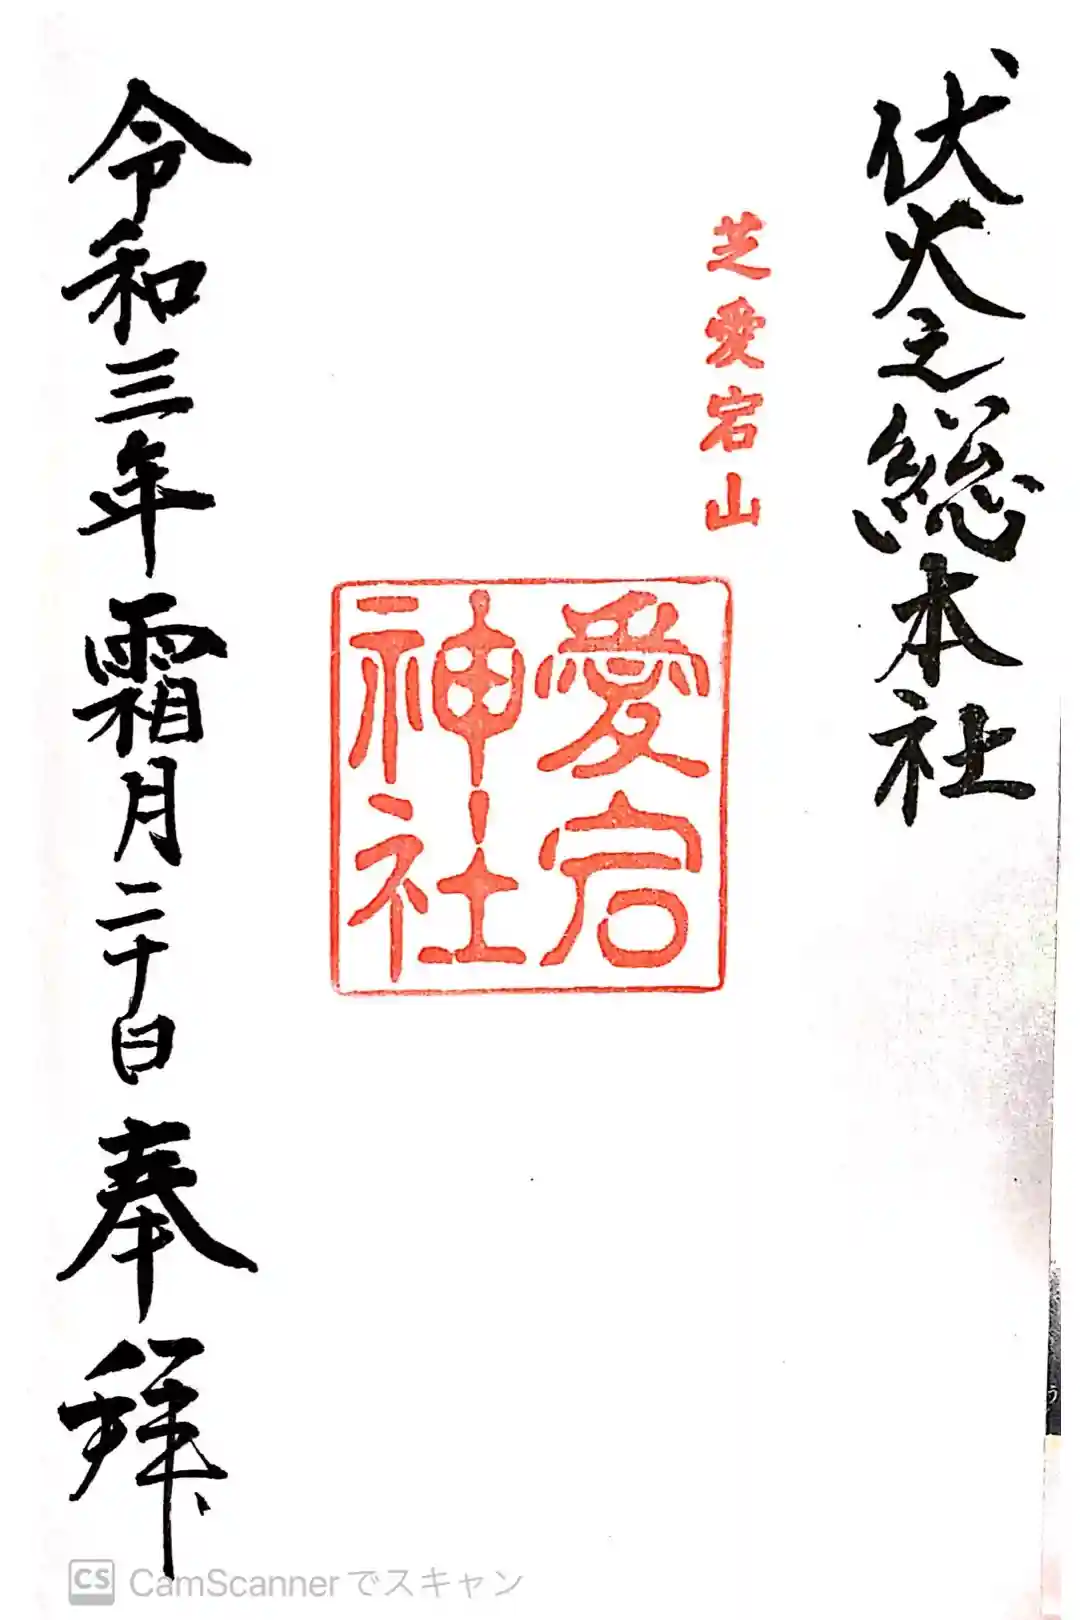 伏火之総本社
芝愛宕山
愛宕
神社
令和三年霜月二十日奉拜
う
CS CamScannerでスキャン